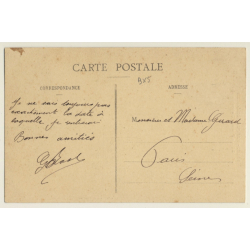 CARTE POSTALE
CORRESPONDANCE
ADRESSE
Je ne sais toujours pas
exactement la date à
laquelle je
Bonnes amitiés
Monsieur et Madame Girard
Paris
Seine